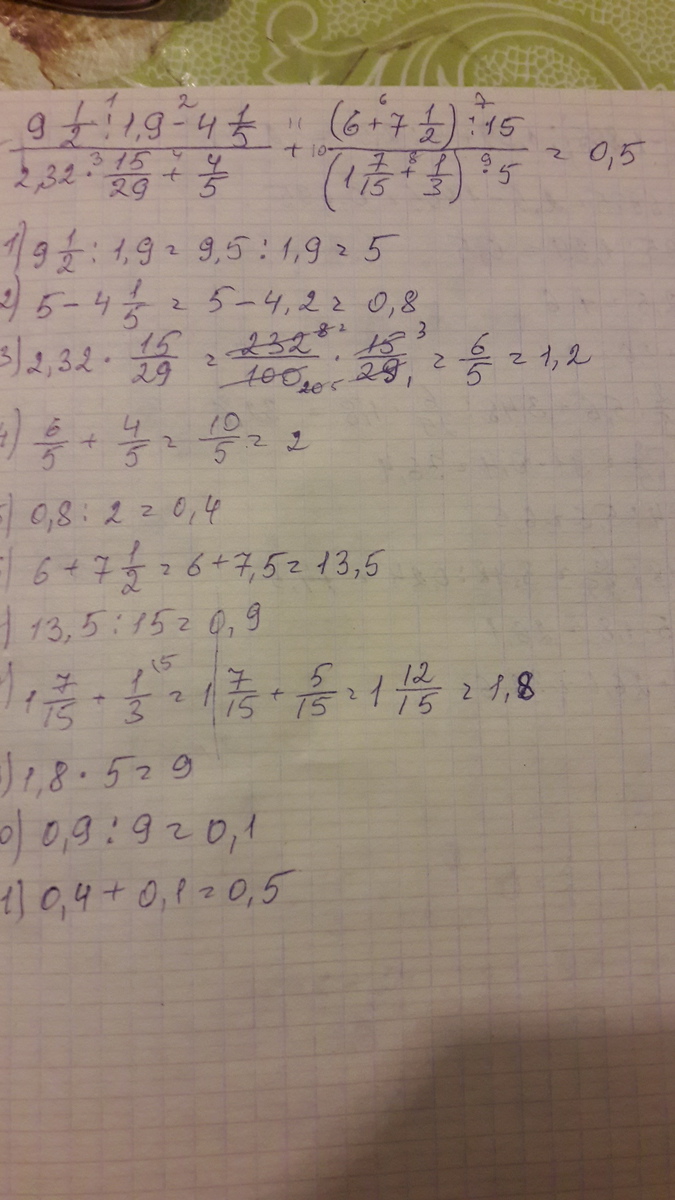 (9 1/2 : 1,9 - 4 1/5) / (2,32 · 15/29 + 4/5) + ((6 + 7 1/2) : 15) / ((1 7/15 + 1/3) · 5) = 0,5
1) 9 1/2 : 1,9 = 9,5 : 1,9 = 5
2) 5 - 4 1/5 = 5 - 4,2 = 0,8
3) 2,32 · 15/29 = 232/100 · 15/29 = 6/5 = 1,2
4) 6/5 + 4/5 = 10/5 = 2
) 0,8 : 2 = 0,4
) 6 + 7 1/2 = 6 + 7,5 = 13,5
) 13,5 : 15 = 0,9
) 1 7/15 + 1/3 = 1 7/15 + 5/15 = 1 12/15 = 1,8
) 1,8 · 5 = 9
0) 0,9 : 9 = 0,1
1) 0,4 + 0,1 = 0,5